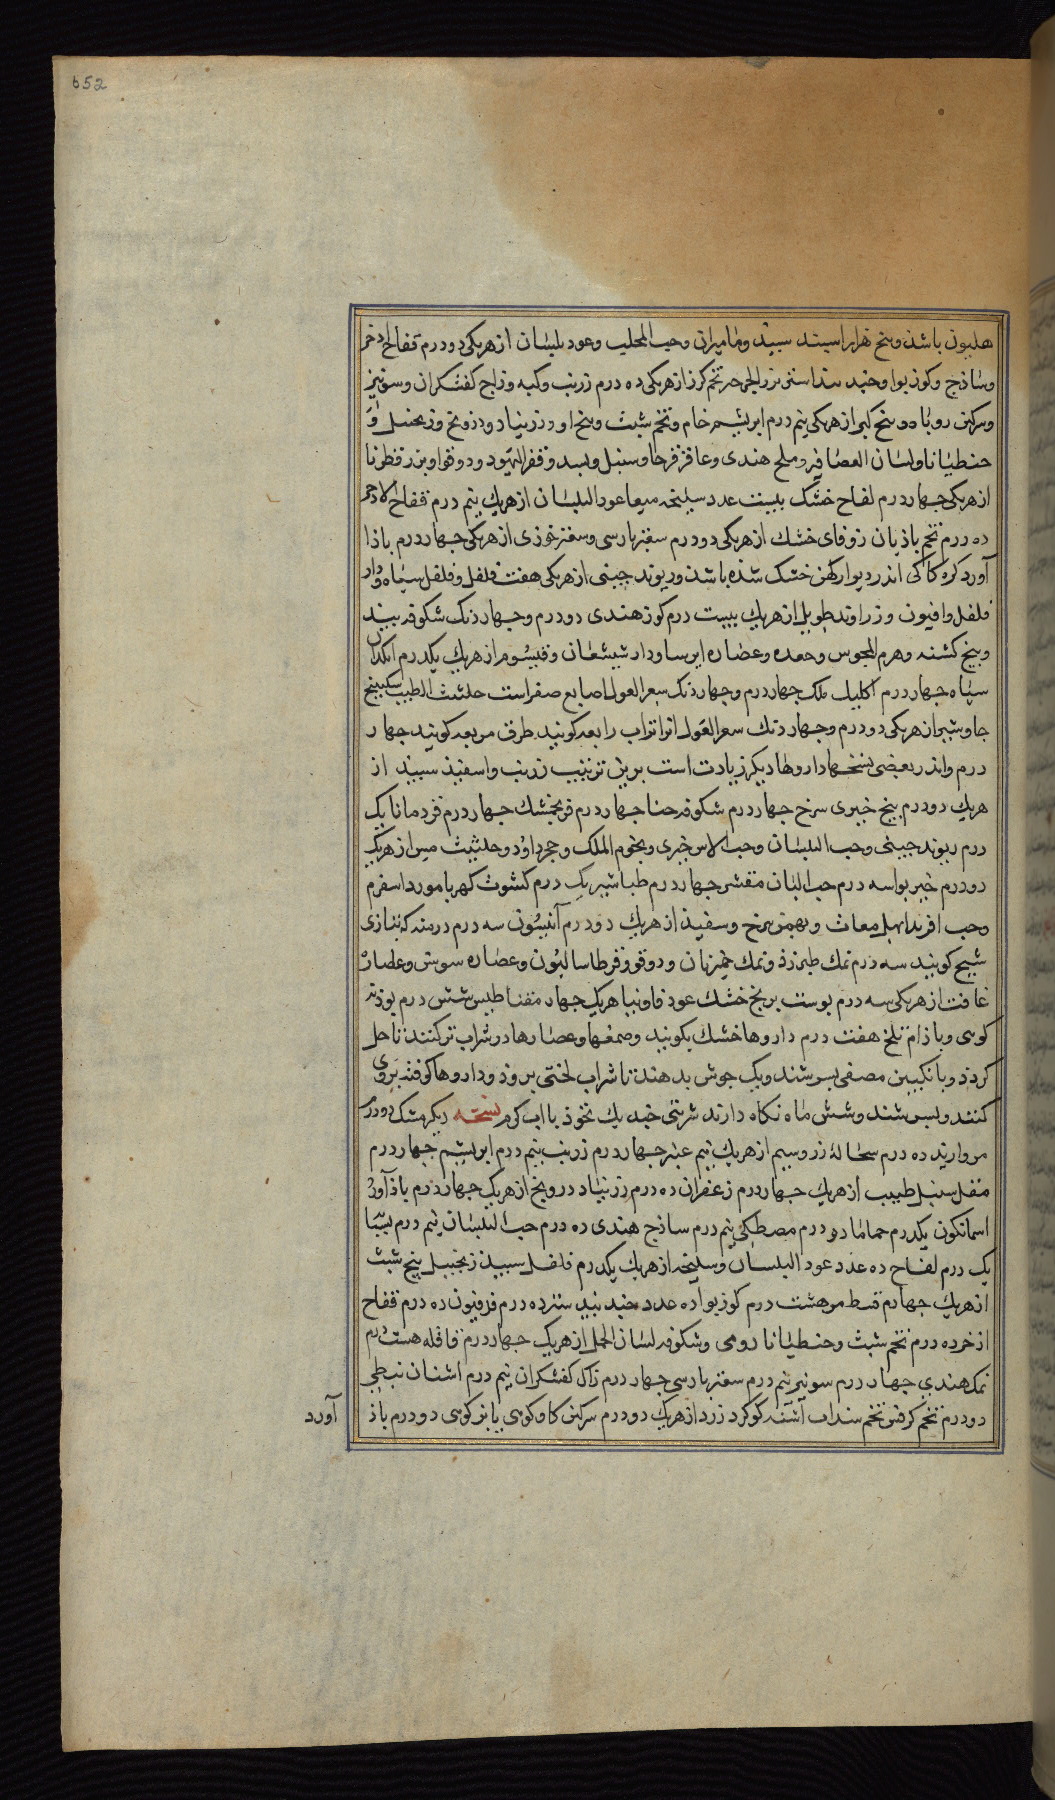 652
هلیون باشد و بیخ هزار اسپند سپید و مامیران و حب المحلب و عود بلسان از هریکی دو درم فقاح اذخر
و ساذج و کوز بوا و جند بزر الجرجر تخم کرز از هریکی ده درم زرنب و کیه و زاج کفشکران و سونیز
و سرکین روباه و بیخ کبر از هریکی نیم درم ابریشم خام و تخم شبث و بیخ او و زرنباد و درونج و زنجبیل و
جنطیانا و لسان العصافیر و ملح هندی و عاقرقرحا و سنبل و بسد و قفر الیهود و دوقو او بزر قطونا
از هریکی چهار درم لفاح خشک بیست عدد سلیخه میعا عود البلسان از هریک نیم درم فقاح الاذخر
ده درم تخم باذیان زوفای خشک از هریکی دو درم سعتر پارسی و سعتر خوزی از هریکی چهار درم باذا
آورد کره کاکی اندر دیوار کهن خشک شده باشد و ریوند چینی از هریکی هفت فلفل و فلفل سیاه و دار
فلفل و افیون و زراوند طویل از هریک بیست درم کوز هندی دو درم و چهار دنک شکوفه بید
و بیخ کشنه و هرم المجوس و جعده و عصاره ایرسا و دار شیشعان و قیسوم از هریک یکدرم
سیاه چهار درم اکلیل ملک چهار درم و چهار دنک سعر الغول اصابع صفر است حلتیث الطیب سکبینج
جاوشیر از هریکی دو درم و چهار دنک سعر الغول اتراب رابعه کویند طرف مربعه کویند چهار
درم و اندر بعضی نسخها داروها دیکر زیادت است برین ترتیب زرنب و اسفید سپید از
هریک دو درم بیخ خیری سرخ چهار درم شکوفه حنا چهار درم فرنجمشک چهار درم قردمانا یک
درم ریوند چینی و حب البلسان و حب الاس خیری و بخور الملک و حجر داود و حلتیث میس از هریک
دو درم خیر بوا سه درم حب البان مقشر چهار درم طباشیر یک درم کشوث کهربا مورد اسفرم
و حب افریدا بهل معاث و بهمن سرخ و سفید از هریک دو درم آنیسون سه درم درمنه که بتازی
شیح کویند سه درم نمک طبرزد و نمک خمیر نان و دوقو و قرطاسالیون و عصاره سوس و عصاره
غافت از هریکی سه درم پوست برنج خشک عود فاوانیا هریک چهار مغناطیس شش درم پوذنه
کوهی و باذام تلخ هفت درم داروها خشک بکوبند و صمغها و عصارها در شراب تر کنند تا حل
کردد و بانکبین مصفی بسرشند و یک جوش بدهند تا شراب لختی برود و داروها کوفته بر وی
کنند و بسرشند و شش ماه نکاه دارند شربتی چند یک نخود با آب کرم نسخه دیکر مشک دو درم
مروارید ده درم سحالهٔ زر و سیم از هریک نیم عنبر چهار درم زرنب نیم درم ابریشم چهار درم
مقل سنبل طیب از هریک چهار درم زعفران ده درم زرنباد درونج از هریک چهار درم باذآورد
اسمانکون یکدرم حماما دو درم مصطکی نیم درم ساذج هندی ده درم حب البلسان نیم درم
یک درم لفاح ده عدد عود البلسان و سلیخه از هریک یکدرم فلفل سپید زنجبیل بیخ شبث
از هریک چهار درم قسط مر هشت درم کوز بوا ده عدد جند بید ستر ده درم فرفیون ده درم فقاح
اذخر ده درم تخم شبث و جنطیانا رومی و شکوفه لسان الحمل از هریک چهار درم قاقله هست درم
نمک هندی چهار درم سونیز نیم درم سعتر پارسی چهار درم زاک کفشکران نیم درم اشنان نبطی
دو درم تخم کرفس تخم سداب اشنه کوکرد زرد از هریک دو درم سرکین کاو کوهی یا بز کوهی دو درم باذ
آورد